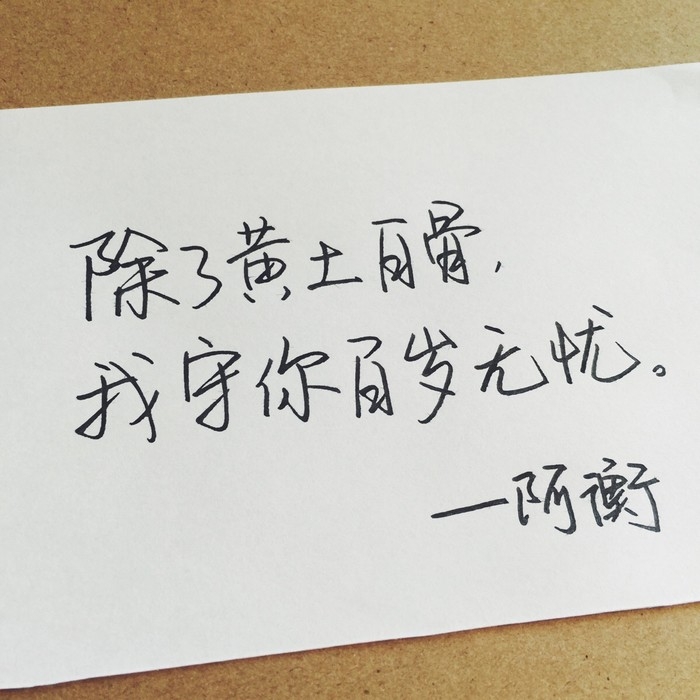 除了黄土白骨,
我守你百岁无忧。
—阿衡